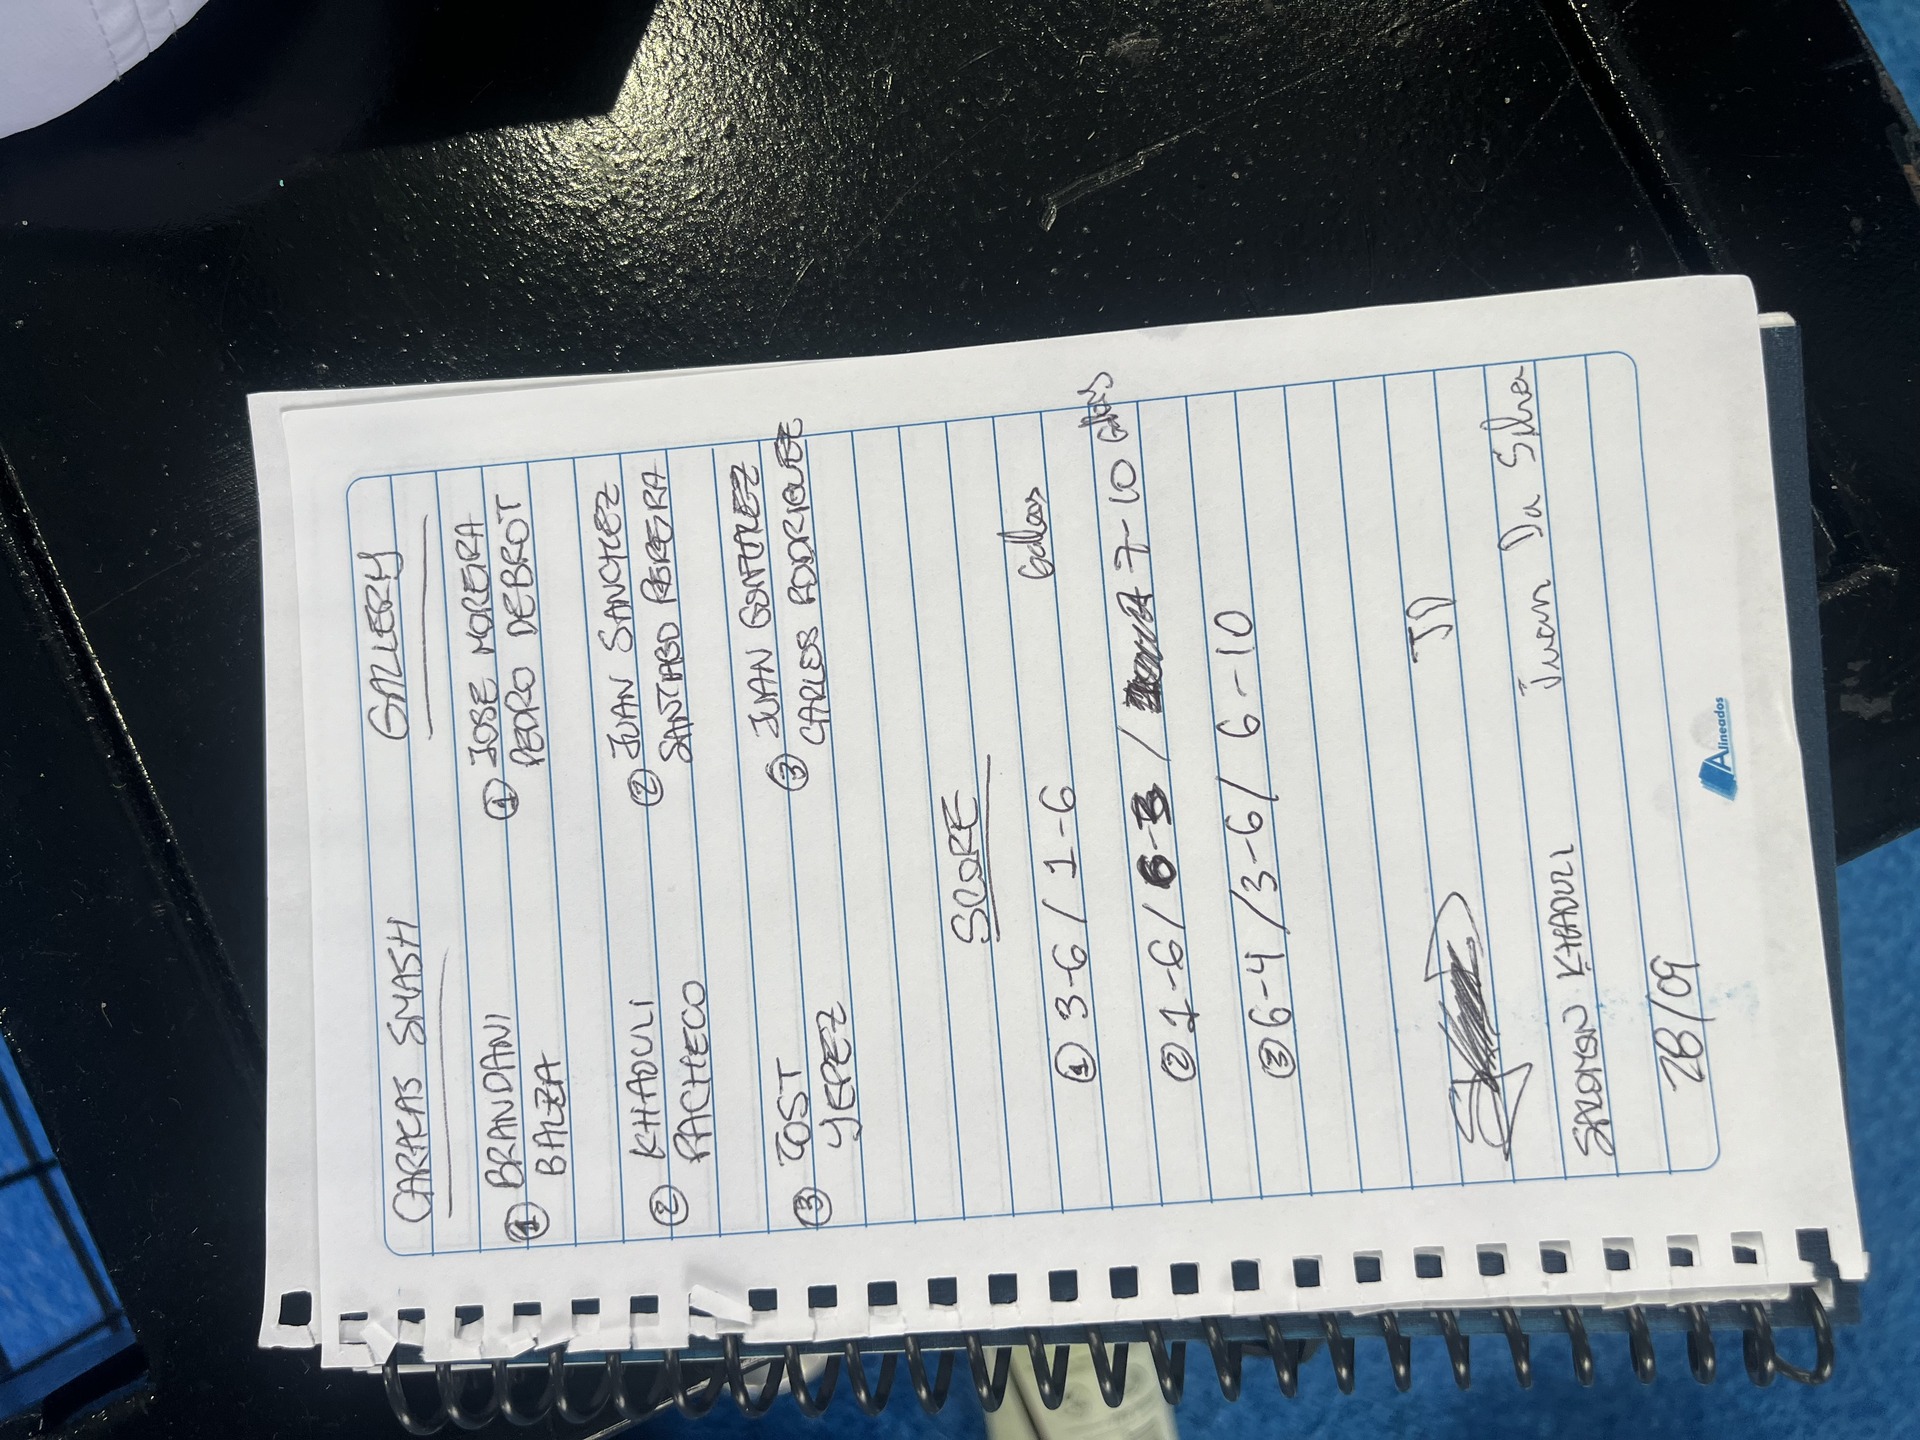 CARACAS SMASH GALLERY
① BRANDANI ① JOSE MOREIRA
BALZA PEDRO DEBROT
② KHAOULI ② JUAN SANCHEZ
PACHECO SANTIAGO PEREIRA
③ TOST ③ JUAN GONZALEZ
YEPEZ CARLOS RODRIGUEZ
SCORE
① 3-6 / 1-6
② 1-6 / 6-3 / 7-10
③ 6-4 / 3-6 / 6-10
JD
Juan Da Silva
SALOMON KHAOULI
28/09
Alineados